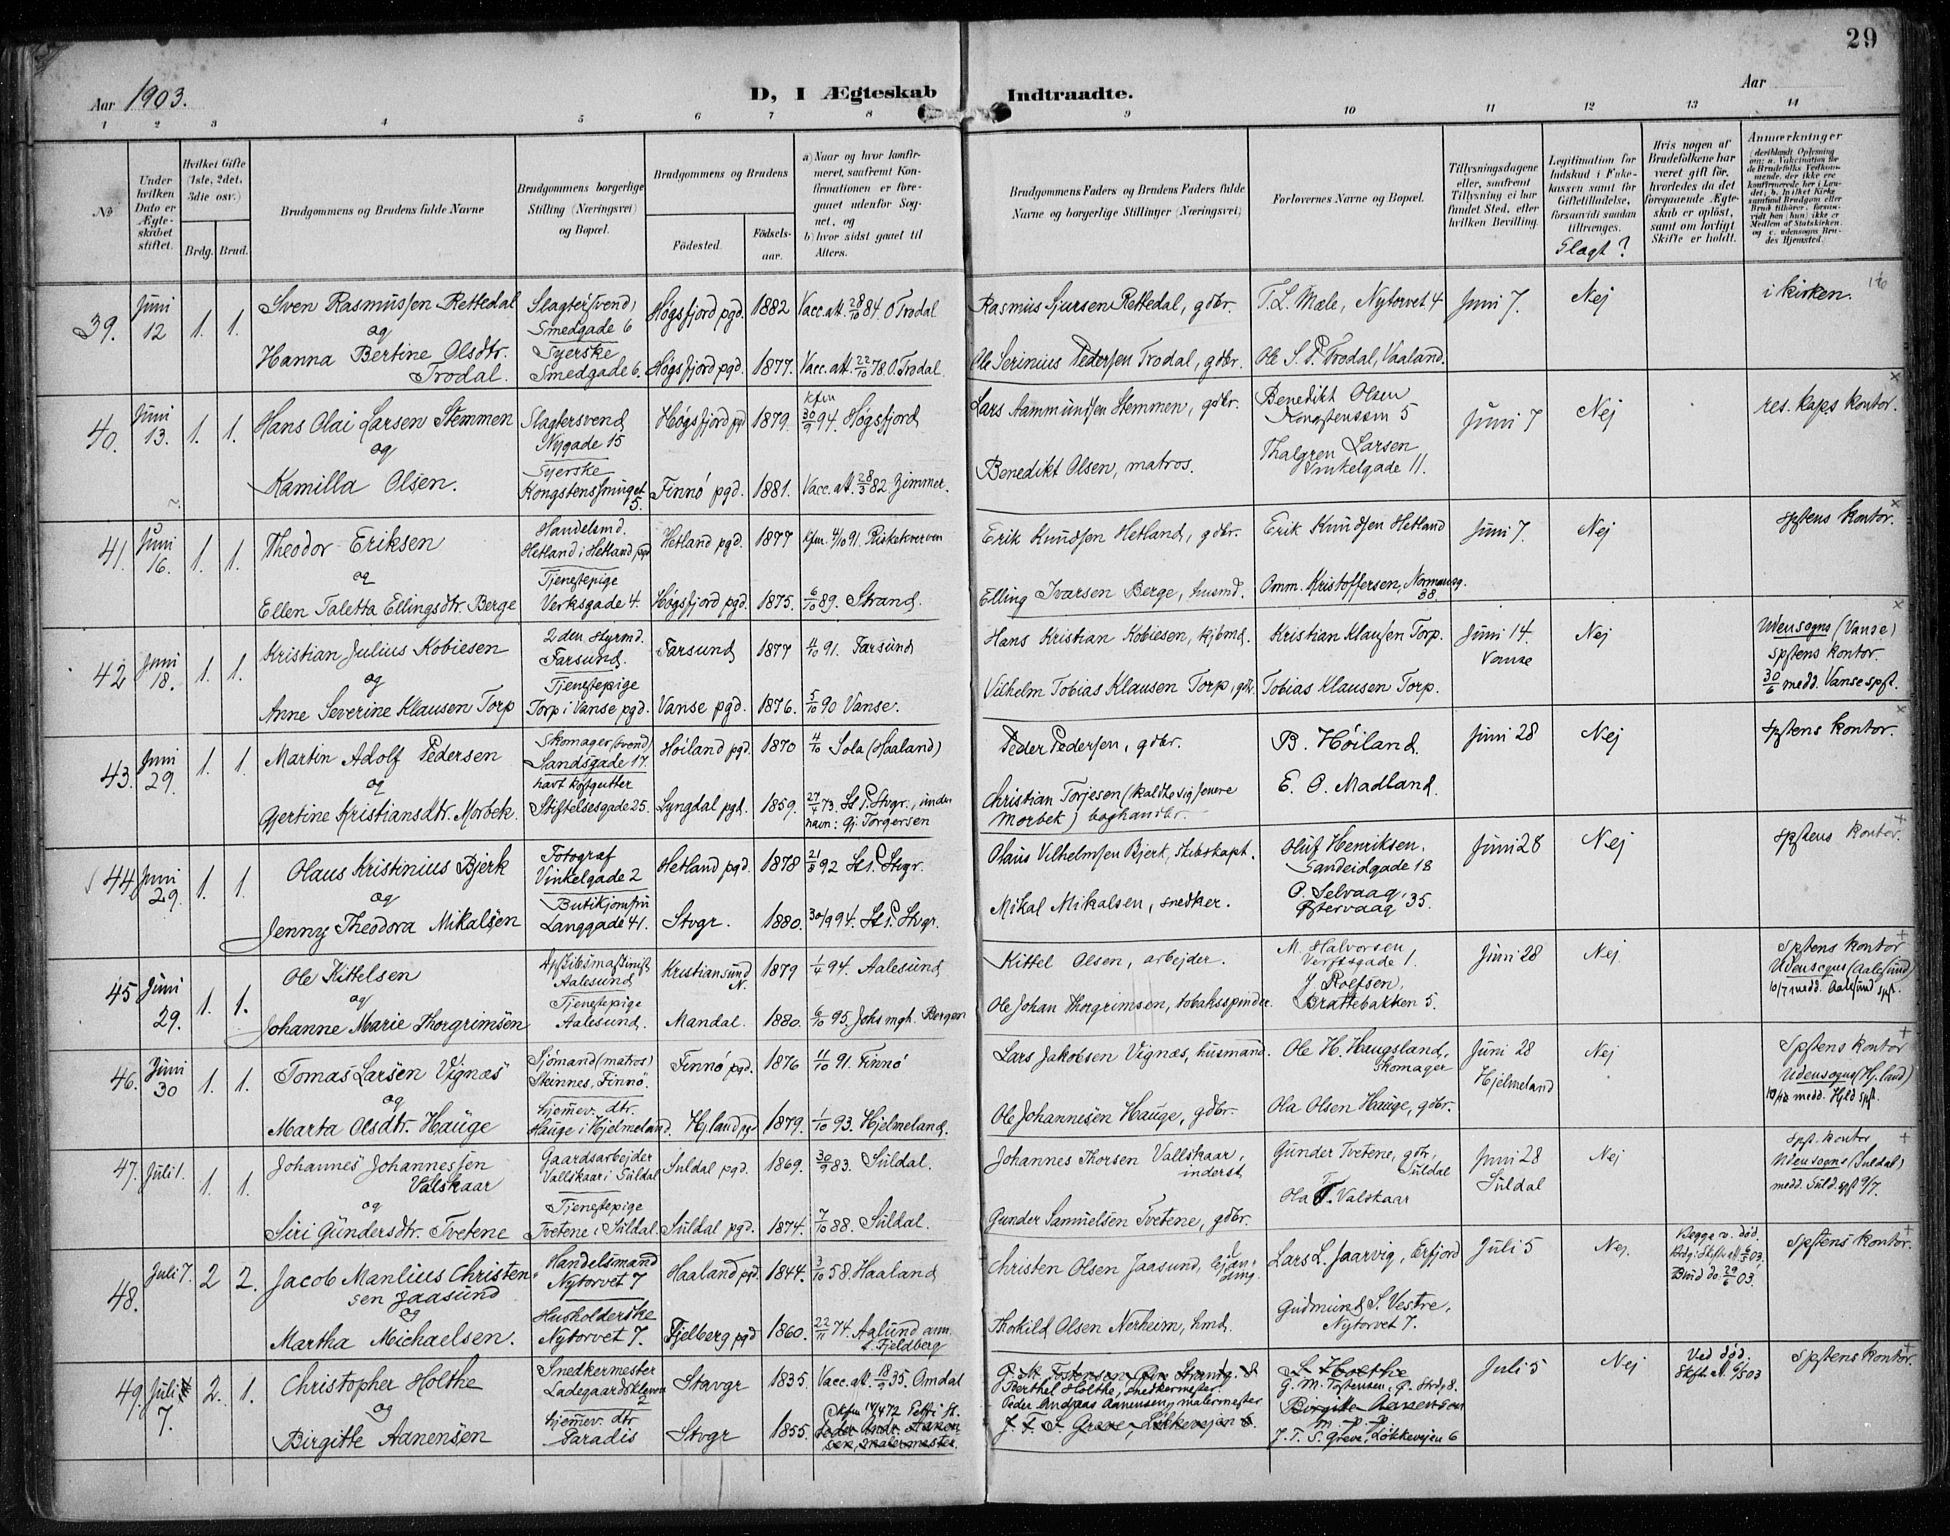 29
Aar 1903.
D, I Ægteskab Indtraadte.
Aar
1 2 3 4 5 6 7 8 9 10 11 12 13 14
No
Under hvilken Dato er Ægteskabet stiftet.
Hvilket Gifte (1ste, 2det, 3die osv.)
Brdg. Brud.
Brudgommens og Brudens fulde Navne
Brudgommens borgerlige Stilling (Næringsvei) og Bopæl.
Brudgommens og Brudens
Fødested. Fødselsaar.
a) Naar og hvor konfirmeret, saafremt Konfirmationen er foregaaet udenfor Sognet, og
b) hvor sidst gaaet til Alters.
Brudgommens Faders og Brudens Faders fulde Navne og borgerlige Stillinger (Næringsvei)
Forlovernes Navne og Bopæl.
Tillysningsdagene eller, saafremt Tillysning ei har fundet Sted, efter hvilken Bevilling.
Legitimation for Indskud i Enkekassen samt for Giftetilladelse, forsaavidt saadan tiltrænges.
Slagt?
Hvis nogen af Brudefolkene har været gift før, hvorledes da det foregaaende Ægteskab er opløst, samt om lovligt Skifte er holdt.
Anmærkninger
39. Juni 12 1. 1. Sven Rasmussen Rettedal
og
Hanna Bertine Olsdtr. Trodal.
Slagter(svend) Smedgade 6
Syerske Smedgade 6.
Høgsfjord pgd. 1882 Vacc. att. 28/10 84. O Trodal
Høgsfjord pgd. 1877. Vacc. att. 22/10 78 O. Trodal.
Rasmus Sjursen Rettedal, gdbr.
Ole Serinius Pedersen Trodal, gdbr.
T. L. Mæle, Nytorvet 4
Ole S. P. Trodal, Vaaland.
Juni 7. Nej i kirken.
40. Juni 13. 1. 1. Hans Olai Larsen Stemmen
og
Kamilla Olsen.
Slagtersvend Nygade 15
Syerske Kongstenssmuget 5.
Høgsfjord pgd 1879. kfm 30/9 94. Høgsfjord
Finnø pgd. 1881. Vacc. att. 28/3 82 Zimmer.
Lars Aammundsen Stemmen, gdbr.
Benedikt Olsen, matros.
Benedikt Olsen
Kongstenssm 5
Thalgren Larsen
Vinkelgade 11.
Juni 7 Nej res. kaps kontor.
41. Juni 16. 1. 1. Theodor Eriksen
og
Ellen Taletta Ellingsdtr. Berge
Handelsmd. Hetland i Hetland pgd
Tjenestepige Verksgade 4.
Hetland pgd. 1877 kfm. 4/10 91.
Høgsfjord pgd. 1875. 6/10 89. Strand.
Erik Knudsen Hetland, gdbr.
Elling Ivarsen Berge, husmd.
Erik Knudsen Hetland
Omm. Kristoffersen, Normansg. 38
Juni 7. Nej spstens kontor.
42 Juni 18. 1. 1. Kristian Julius Kobiesen
og
Anne Severine Klausen Torp
2den styrmd. Farsund.
Tjenestepige Torp i Vanse pgd.
Farsund 1877 4/10 91. Farsund
Vanse pgd. 1876. 5/10 90 Vanse.
Hans Kristian Kobiesen, kjbmd.
Vilhelm Tobias Klausen Torp, gdbr.
Kristian Klausen Torp.
Tobias Klausen Torp.
Juni 14. Vanse Nej
Udensogns (Vanse)
spstens kontor.
30/6 medd. Vanse spst.
43. Juni 29. 1. 1. Martin Adolf Pedersen
og
Gjertine Kristiansdtr. Morbek.
Skomager(svend) Sandsgade 17.
Stiftelsesgade 25.
Høiland pgd. 1870 4/10 Sola (Haaland)
Lyngdal pgd. 1859. 27/4 73. St P. Stvgr., under navn: Gj. Torgersen
Peder Pedersen, gdbr.
Christian Torjesen (kaldte sig senere Morbek)
B. Høiland.
E. O. Madland.
Juni 28 Nej Spstens kontor.
44 Juni 29. 1. 1. Olaus Kristinius Bjerk
og
Jenny Theodora Mikalsen
Fotograf Vinkelgade 2
Butikjomfru Langgade 41.
Hetland pgd. 1878 21/8 92 St P. Stvgr.
Stvgr. 1880. 30/9 94. St P. Stvgr.
Olaus Vilhelmsen Bjerk, skibskapt.
Mikal Mikalsen, snedker.
Oluf Henriksen.
Sandeidgade 18
O. Selvaag,
Østervaag 35.
Juni 28 Nej Spstens kontor.
45 Juni 29. 1. 1. Ole Kittelsen
og
Johanne Marie Thorgrimsen
Aalesund
Tjenestepige Aalesund.
Kristiansund N. 1879 1/4 94. Aalesund
Mandal. 1880. 6/10 95. Johs mgh. Bergen
Kittel Olsen, arbejder.
Ole Johan Thorgrimsen, tobaksspinder
M. Halvorsen
Verftsgade 1.
J. Roelfsen,
Brattebakken 5.
Juni 28 Nej
Spstens kontor
Udensogns (Aalesund)
10/7 medd. Aalesund spst.
46. Juni 30 1. 1. Tomas Larsen Vignæs
og
Marta Olsdtr. Hauge
Sjømand (matros) Steinnes, Finnø.
hjemev. dtr. Hauge i Hjelmeland.
Finnø pgd. 1876 11/10 91 Finnø
Hj.land pgd 1879. 1/10 93. Hjelmeland.
Lars Jakobsen Vignæs, husmand.
Ole Johannesen Hauge, gdbr.
Ole H. Haugsland, Skomager
Ola Olsen Hauge, gdbr.
Juni 28 Hjelmeland Nej
Spstens kontor
Udensogns (Hj.land)
medd. Hjld spst.
47. Juli 1. 1. 1. Johannes Johannessen Valskaar
og
Siri Gundersdtr. Tvetene
Gaardsarbejder Vallskaar i Suldal
Tjenestepige Tvetene i Suldal
Suldal pgd. 1869. 30/9 83. Suldal.
Suldal pgd. 1874. 7/10 88. Suldal.
Johannes Thorsen Vallskaar, inderst
Gunder Samuelsen Tvetene, gdbr.
Gunder Tvetene, gdbr, Suldal
Ola T. Valskaar
Juni 28 Suldal Nej
Spst. kontor
Udensogns (Suldal)
medd. Suld. spst 9/7.
48. Juli 7. 2 2. Jacob Manlius Christensen Jaasund
og
Martha Michaelsen.
Handelsmand Nytorvet 7
Husholderske Nytorvet 7.
Haaland pgd. 1844. 3/10 58. Haaland
Fjelberg pgd 1860. 22/11 74. Aalund ann. t. Fjeldberg
Christen Olsen Jaasund,
Thorkild Olsen Nerheim, hmd.
Lars L. Jaarvig, Erfjord
Gudmund S. Vestre,
Nytorvet 7.
Juli 5 Nej.
Begge v. død.
Brdg: Skifteatt 6/5 03.
Brud do. 29/6 03.
Spstens kontor.
49. Juli 7. 2. 1. Christopher Holthe
og
Birgitte Aanensen
Snedkermester Ladegaardsveien 2
hjemev. dtr Paradis
Stavgr 1835. Vacc. att. 18/9 35. Omdal
Stvgr 1855. kfm 14/4 72 Petri k.
Berthel Holthe, snedkermester.
Peder Andreas Aanensen, malermester
J. T. S. Greve, Løkkeveien 6.
L Holthe
G. M. Tostensen, Ø. Strdg. 8.
Birgitte Aanensen
J. T. S. Greve, Løkkevejen 6
Juli 5 Nej
Ved død.
Skifte att. 6/5 03
Spstens kontor.